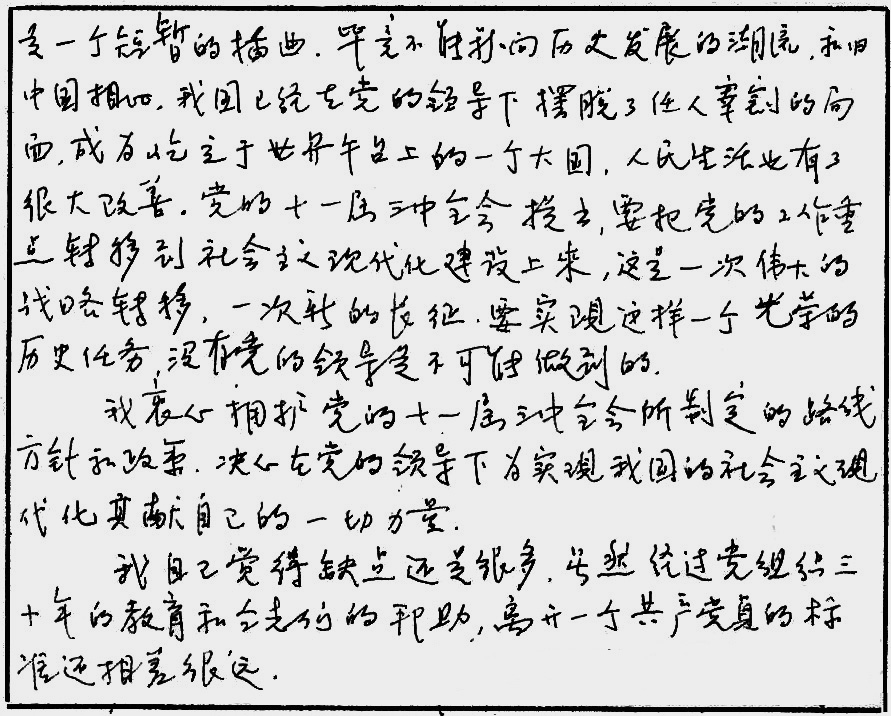 是一个短暂的插曲.毕竟不能影响历史发展的潮流,和旧
中国相比,我国已经在党的领导下摆脱了任人宰割的局
面,成为屹立于世界舞台上的一个大国,人民生活也有了
很大改善.党的十一届三中全会提出,要把党的工作重
点转移到社会主义现代化建设上来,这是一次伟大的
战略转移,一次新的长征.要实现这样一个光荣的
历史任务,没有党的领导是不可能做到的.
我衷心拥护党的十一届三中全会所制定的路线
方针和政策.决心在党的领导下为实现我国的社会主义现
代化贡献自己的一切力量.
我自己觉得缺点还是很多.虽然经过党组织三
十年的教育和同志们的帮助,离开一个共产党员的标
准还相差很远.